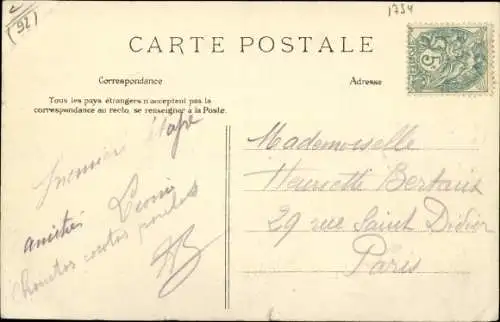 (92)
1754
CARTE POSTALE
Correspondance
Adresse
Tous les pays étrangers n'acceptent pas la
correspondance au recto, se renseigner à la Poste.
5
Premier étape
amitiés
Mademoiselle
Henriette Bertaux
29 rue Saint Didier
Paris